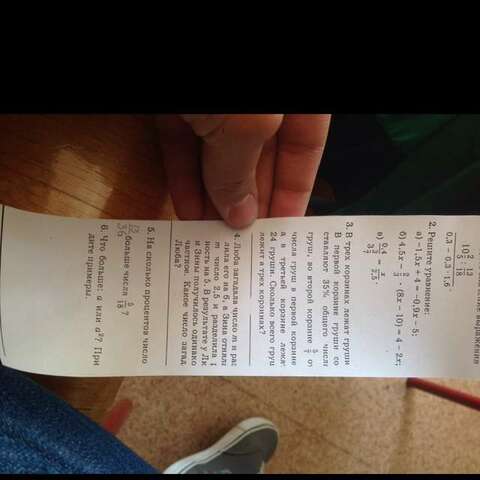 выражения
10 2/5 : 13/18
0,3 − 0,3 · 1,6
2. Решите уравнение:
а) −1,5x + 4 = −0,9x − 5;
б) 4,5x −
· (8x − 10) = 4 − 2x;
в) 0,4
= x/2,5
3. В трех корзинах лежат груши
В первой корзине груши со
ставляют 35% общего числ
груш, во второй корзине
числа груш в первой корзине
а в третьей корзине лежа
24 груши. Сколько всего груш
лежит в трех корзинах?
4. Люба загадала число m и раз
лила его на 6, а Зина отняла
m число 2,5 и разделила
ность на 5. В результате у Лю
и Зины получилось одинако
частное. Какое число загад
Люба?
5. На сколько процентов число
13/36 больше числа 5/18?
6. Что больше: a или a²? При
дите примеры.